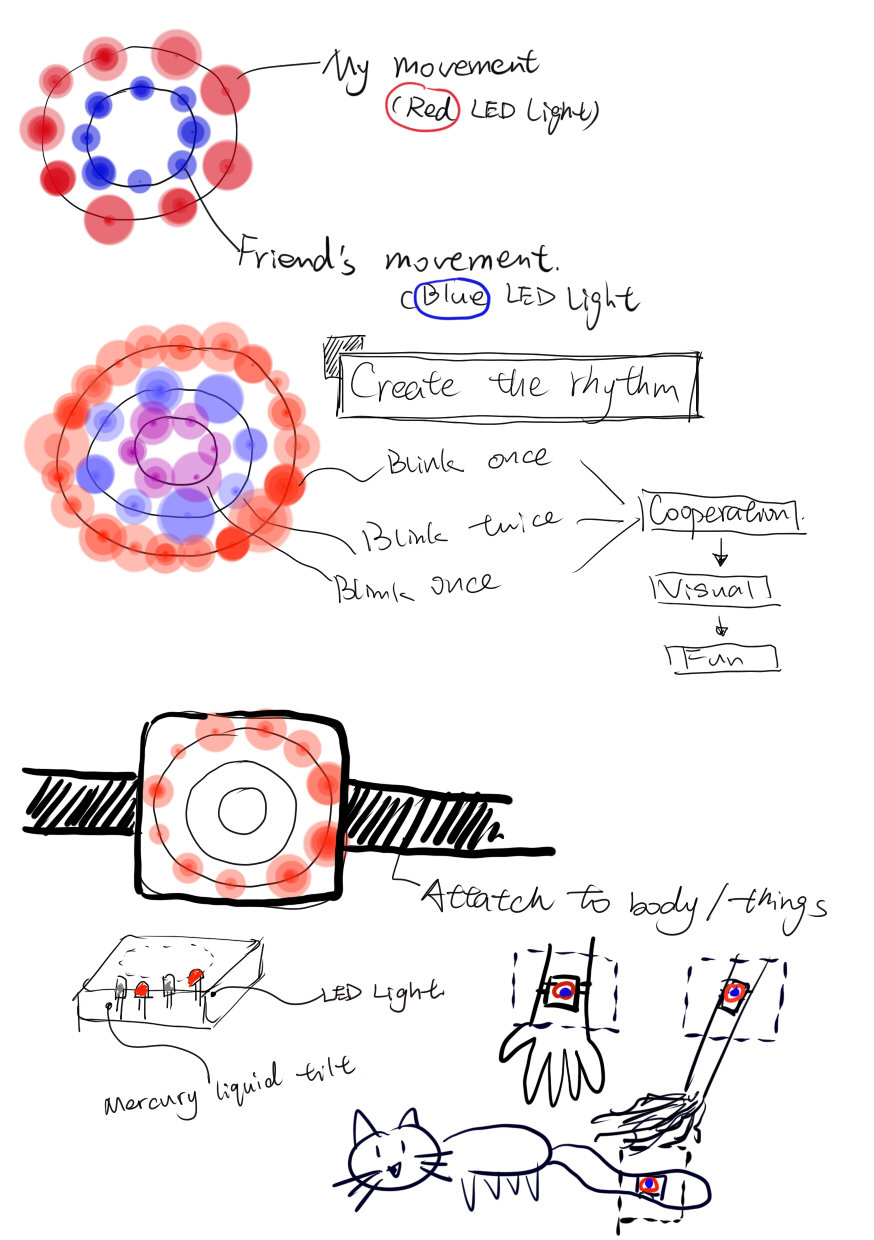 My movement
(Red LED Light)
Friend's movement.
(Blue LED Light
Create the rhythm
Blink once
Blink twice
Blink once
Cooperation.
Visual
Fun
Attatch to body/things
LED Light.
Mercury liquid tilt